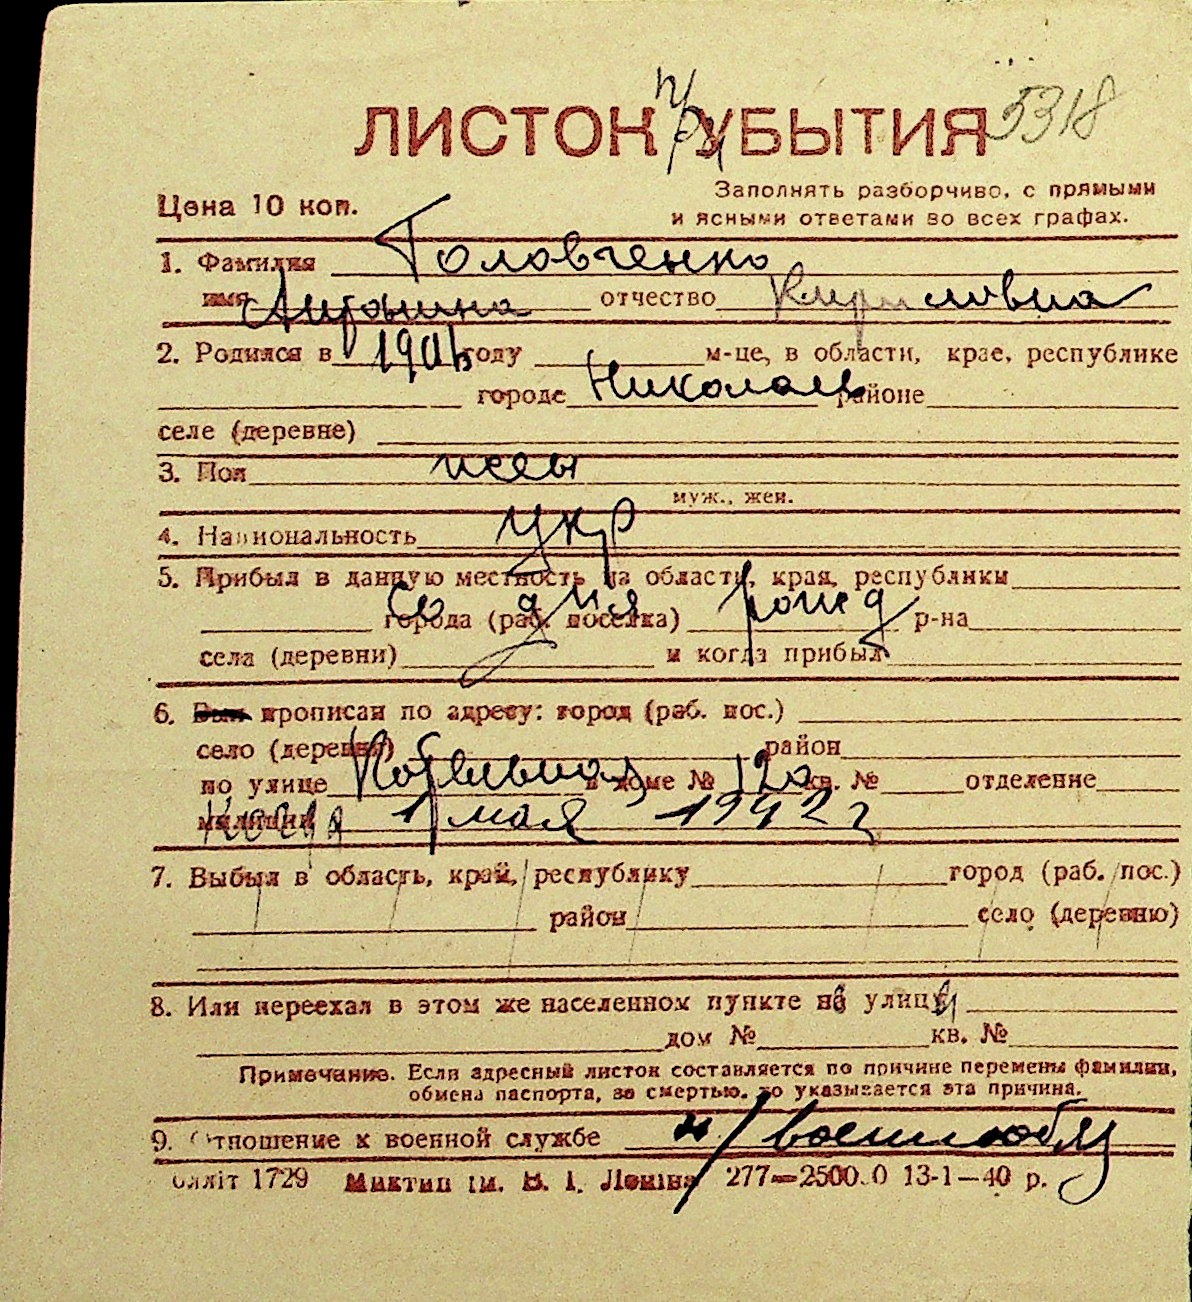 ЛИСТОК УБЫТИЯ 5318
при
Цена 10 коп.
Заполнять разборчиво, с прямыми
и ясными ответами во всех графах.
1. Фамилия Головченко
имя Антонина отчество Кирилловна
2. Родился в 1906 году м-це, в области, крае, республике
городе Николаев районе
селе (деревне)
3. Пол
муж., жен.
4. Национальность укр
5. Прибыл в данную местность из области, края, республики
города (раб. поселка) р-на
со дня рожд
села (деревни) и когда прибыл
6. прописан по адресу: город (раб. пос.)
село (деревня) район
по улице Котельная в доме № 120 кв. № отделение
милиции
Когда 1 мая 1942 г
7. Выбыл в область, край, республику город (раб. пос.)
район село (деревню)
8. Или переехал в этом же населенном пункте на улицу
дом № кв. №
Примечание. Если адресный листок составляется по причине перемены фамилии,
обмена паспорта, за смертью, то указывается эта причина.
9. Отношение к военной службе н/военнообяз
олліт 1729 Миктип ім. В. І. Леніна 277—2500.0 13-1—40 р.